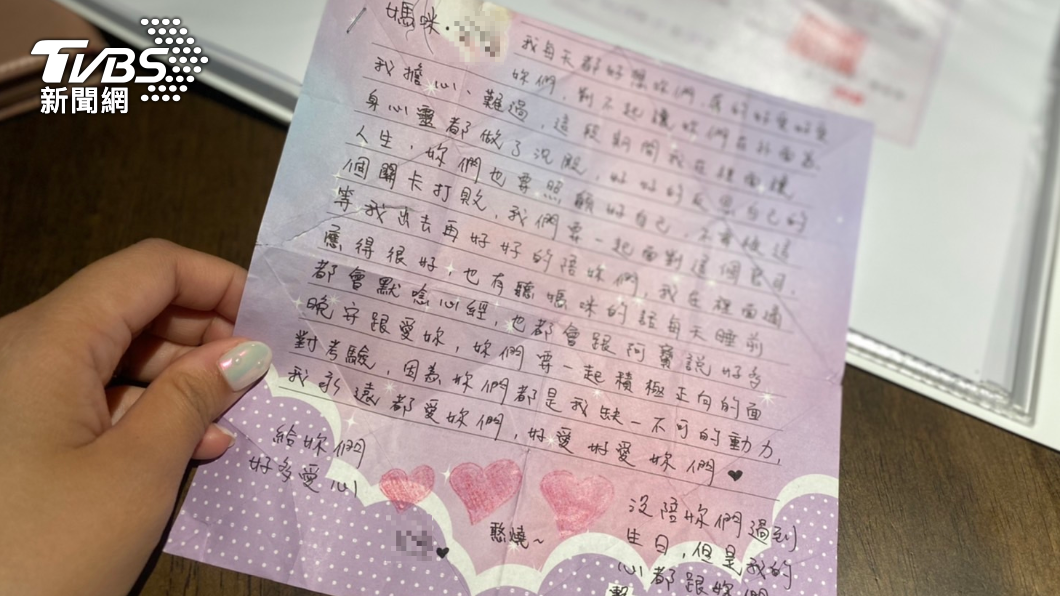 TVBS
新聞網
媽咪.
我每天都好想妳們,真的好愛好愛
妳們,對不起讓妳們在外面為
我擔心、難過,這段期間我在裡面讓
身心靈都做了沉殿,好好的反思自己的
人生,妳們也要照顧好自己,不要被這
個關卡打敗,我們要一起面對這個
等我出去再好好的陪妳們,我在裡面適
應得很好,也有聽媽咪的話每天睡前
都會默唸心經,也都會跟阿寶說好多
晚安跟愛妳,妳們要一起積極正向的面
對考驗,因為妳們都是我缺一不可的動力,
我永遠都愛妳們,好愛好愛妳們♥
給妳們
好多愛心
♥
憨燒~
沒陪妳們過到
生日,但是我的
心都跟妳們